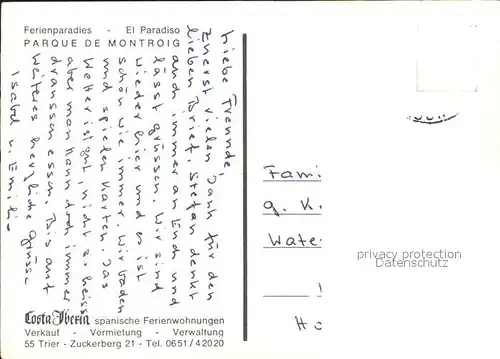 Ferienparadies - El Paradiso
PARQUE DE MONTROIG
Liebe Freunde,
Zuerst vielen Dank für den
lieben Brief. Stefan denkt
auch immer an Euch und
lässt grüssen. Wir sind
wieder hier und es ist
schön wie immer. Wir baden
und spielen Karten. Das
Wetter ist gut, nicht so heiss
aber man kann doch immer
draussen essen. Bis auf
weiteres herzliche Grüsse
Isabel u. Emilio
Fami
g. K.
Wate
Ho
privacy protection
Datenschutz
Costa Iberia spanische Ferienwohnungen
Verkauf - Vermietung - Verwaltung
55 Trier - Zuckerberg 21 - Tel. 0651/42020